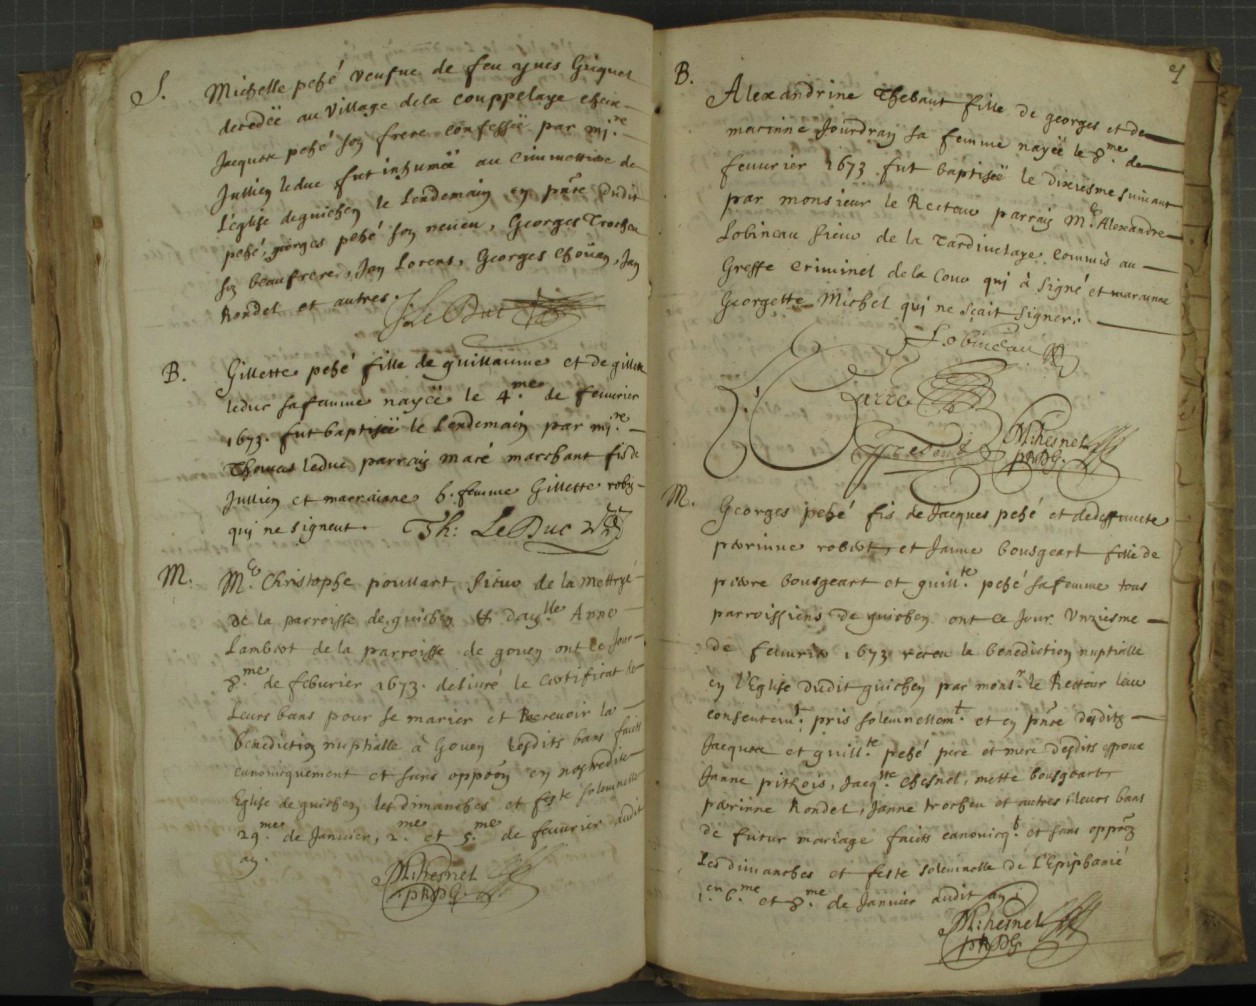 S.
Michelle pehé veufue de feu yues Guguet
decedëe au village dela couppelaye chein
Jacques pehé son frere confessëe par mi.re
Jullien leduc fut inhumëe au Cimmettiere de
L'eglise deguichen le Lendemain en pnce dudit
pehé, georges pehé son neueu, Georges Trocheu
son beaufrere, Jan Lorens, Georges Chöuan, Jan
Rondel et autres.
J. Le Duc
B.
Gillette pehé fille de guillaume et de gillette
leduc safamme nayëe le 4.me de feburier
1673. fut baptisëe le Lendemain par mi.re
Thomas leduc parrain macé marchant fis de
Jullien et marraine h. femme Gillette robin
qui ne signent. Th: Le Duc
M.
M.e Christophe poullart, Sieur de la mettrye
de la parroisse de guichen et dam.lle Anne
Lambert de la parroisse de gouen ont ce jour
8.me de feburier 1673. deliuré le certificat de
Leurs bans pour se marier et Recevoir la
benediction nuptialle à Gouen Lesdits bans faicts
canonicquement et sans oppõn en nostredite
Eglise de guichen les dimanches et feste solemnelle
29.me de Januier, 2.me et 5.me de feburier audit
an.
M. hesnel
pRDG.
B.
Alexandrine Thebaut fille de georges et de
marinne Jourdran sa femme nayëe le 8.me de
feuurier 1673. fut baptisëe le dixiesme suiuant
par monsieur le Recteur parrain M.e Alexandre
Lobineau Sieur de la Tardiuelaye commis au
Greffe criminel de la Cour qui à signé et marainne
Georgette Michel qui ne sçait signer.
Lobineau
M. hesnel
pRDG.
M.
Georges pehé fis de Jacques pehé et dedeffuncte
perrinne robert, et Janne bousgeart fille de
pierre bousgeart et guill.te pehé safemme tous
parroissiens de guichen ont ce Jour Unziesme
de feburier 1673 receu la benediction nuptialle
en l'Eglise dudit guichen par mons.r le Recteur leur
consentem.t pris solemnellem.t et en pnce desdits
Jacques et guill.te pehé pere et mere desdits espoux
Janne pithois, Jacq.tte chesnel, mette bousgeart
perinne Rondel, Janne trocheu et autres leurs bans
de futur mariage faicts canonicq.t et sans oppõn
Les dimanches et feste solemnelle de L'Epiphanie
1. 6.me et 8.me de Januier audit an.
M. hesnel
pRDG